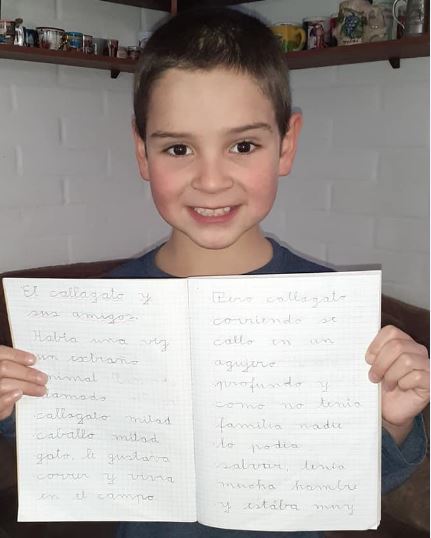 El callagato y
sus amigos.
Había una vez
un extraño
animal
llamado
callagato mitad
caballo mitad
gato, le gustava
correr y vivía
en el campo
Pero callagato
corriendo se
callo en un
agujero
profundo y
como no tenía
familia nadie
lo podía
salvar, tenía
mucha hambre
y estába muy